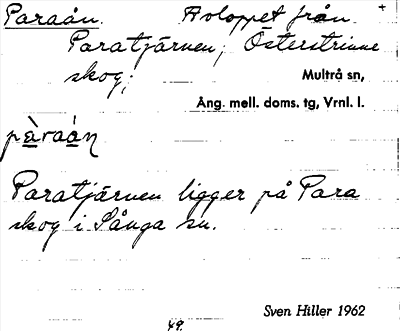 Paraån. Avloppet från
Paratjärnen; Österstrinne
skog;
Multrå sn,
Ång. mell. doms. tg, Vrnl. l.
pàraán
Paratjärnen ligger på Para
skog i Sånga sn.
Sven Hiller 1962
49.